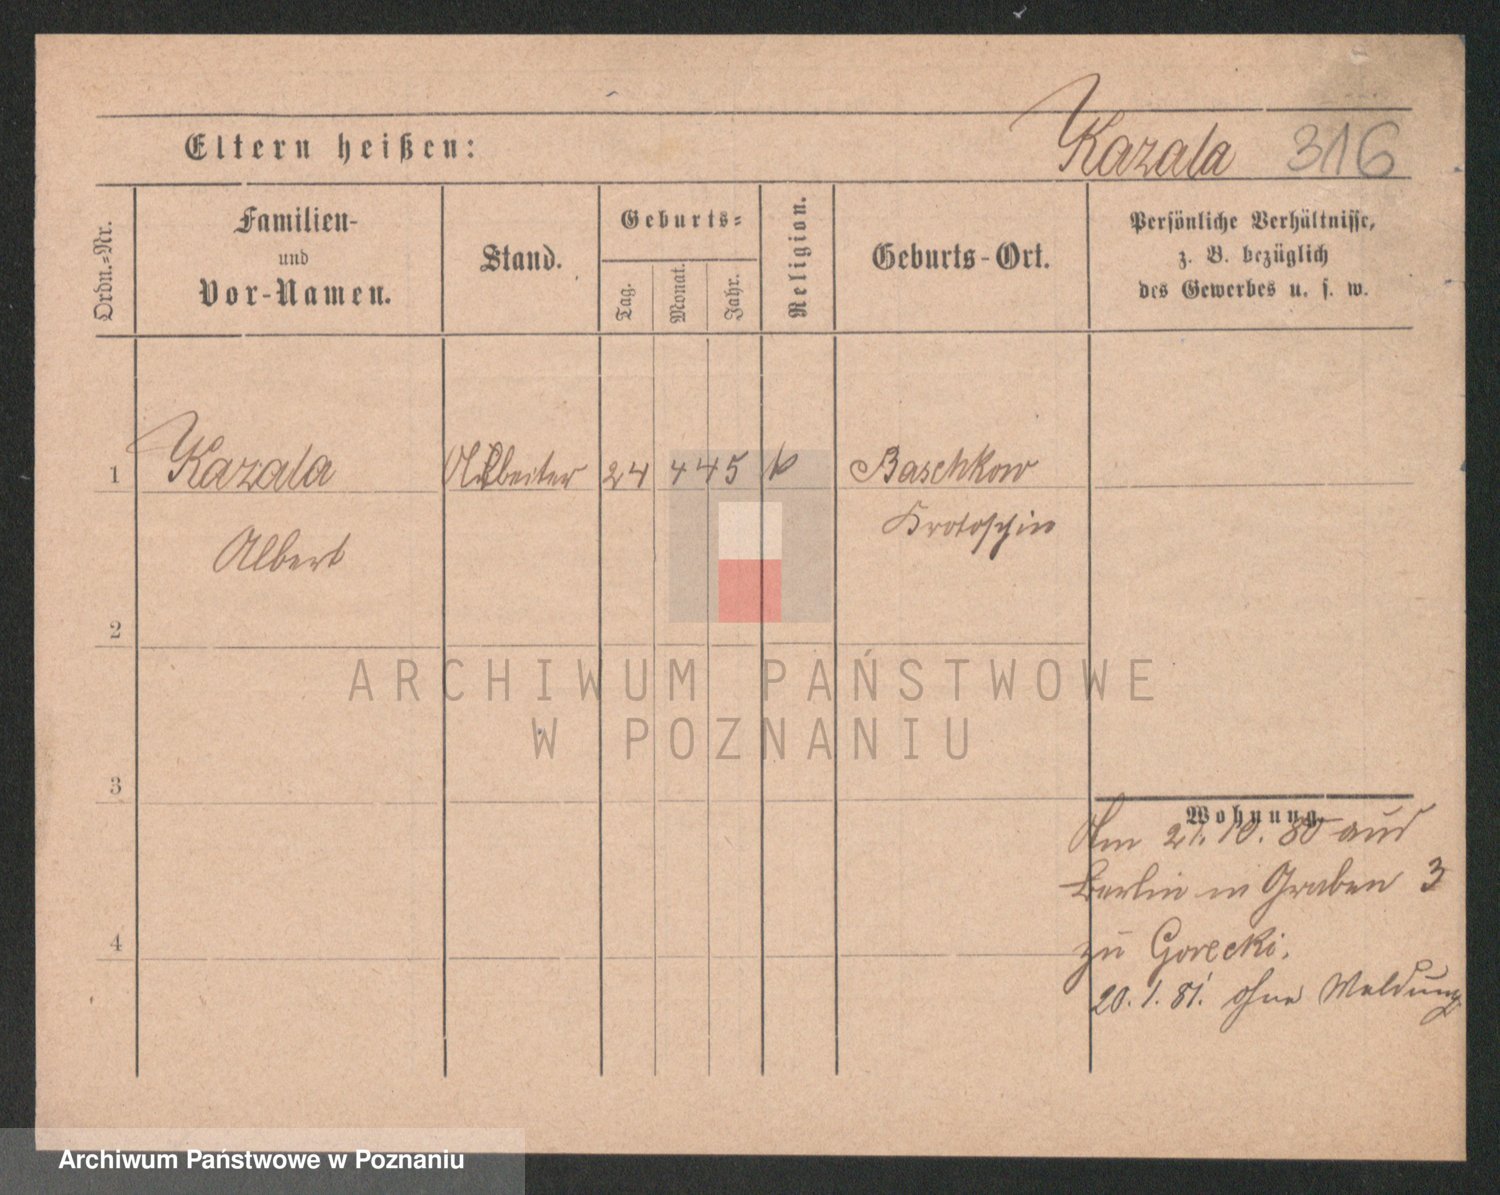 Eltern heißen: Kazala 316
Ordn.-Nr.
Familien-
und
Vor-Namen.
Stand.
Geburts-
Tag.
Monat.
Jahr.
Religion.
Geburts-Ort.
Persönliche Verhältnisse,
z. B. bezüglich
des Gewerbes u. s. w.
1 Kazala Arbeiter 24 4 45 k Baschkow
Krotoschin
Albert
2
ARCHIWUM PAŃSTWOWE
W POZNANIU
3
Wohnung.
Am 21.10.80 aus
Berlin in Graben 3
zu Gorecki.
4
20.1.81. ohne Meldung
Archiwum Państwowe w Poznaniu